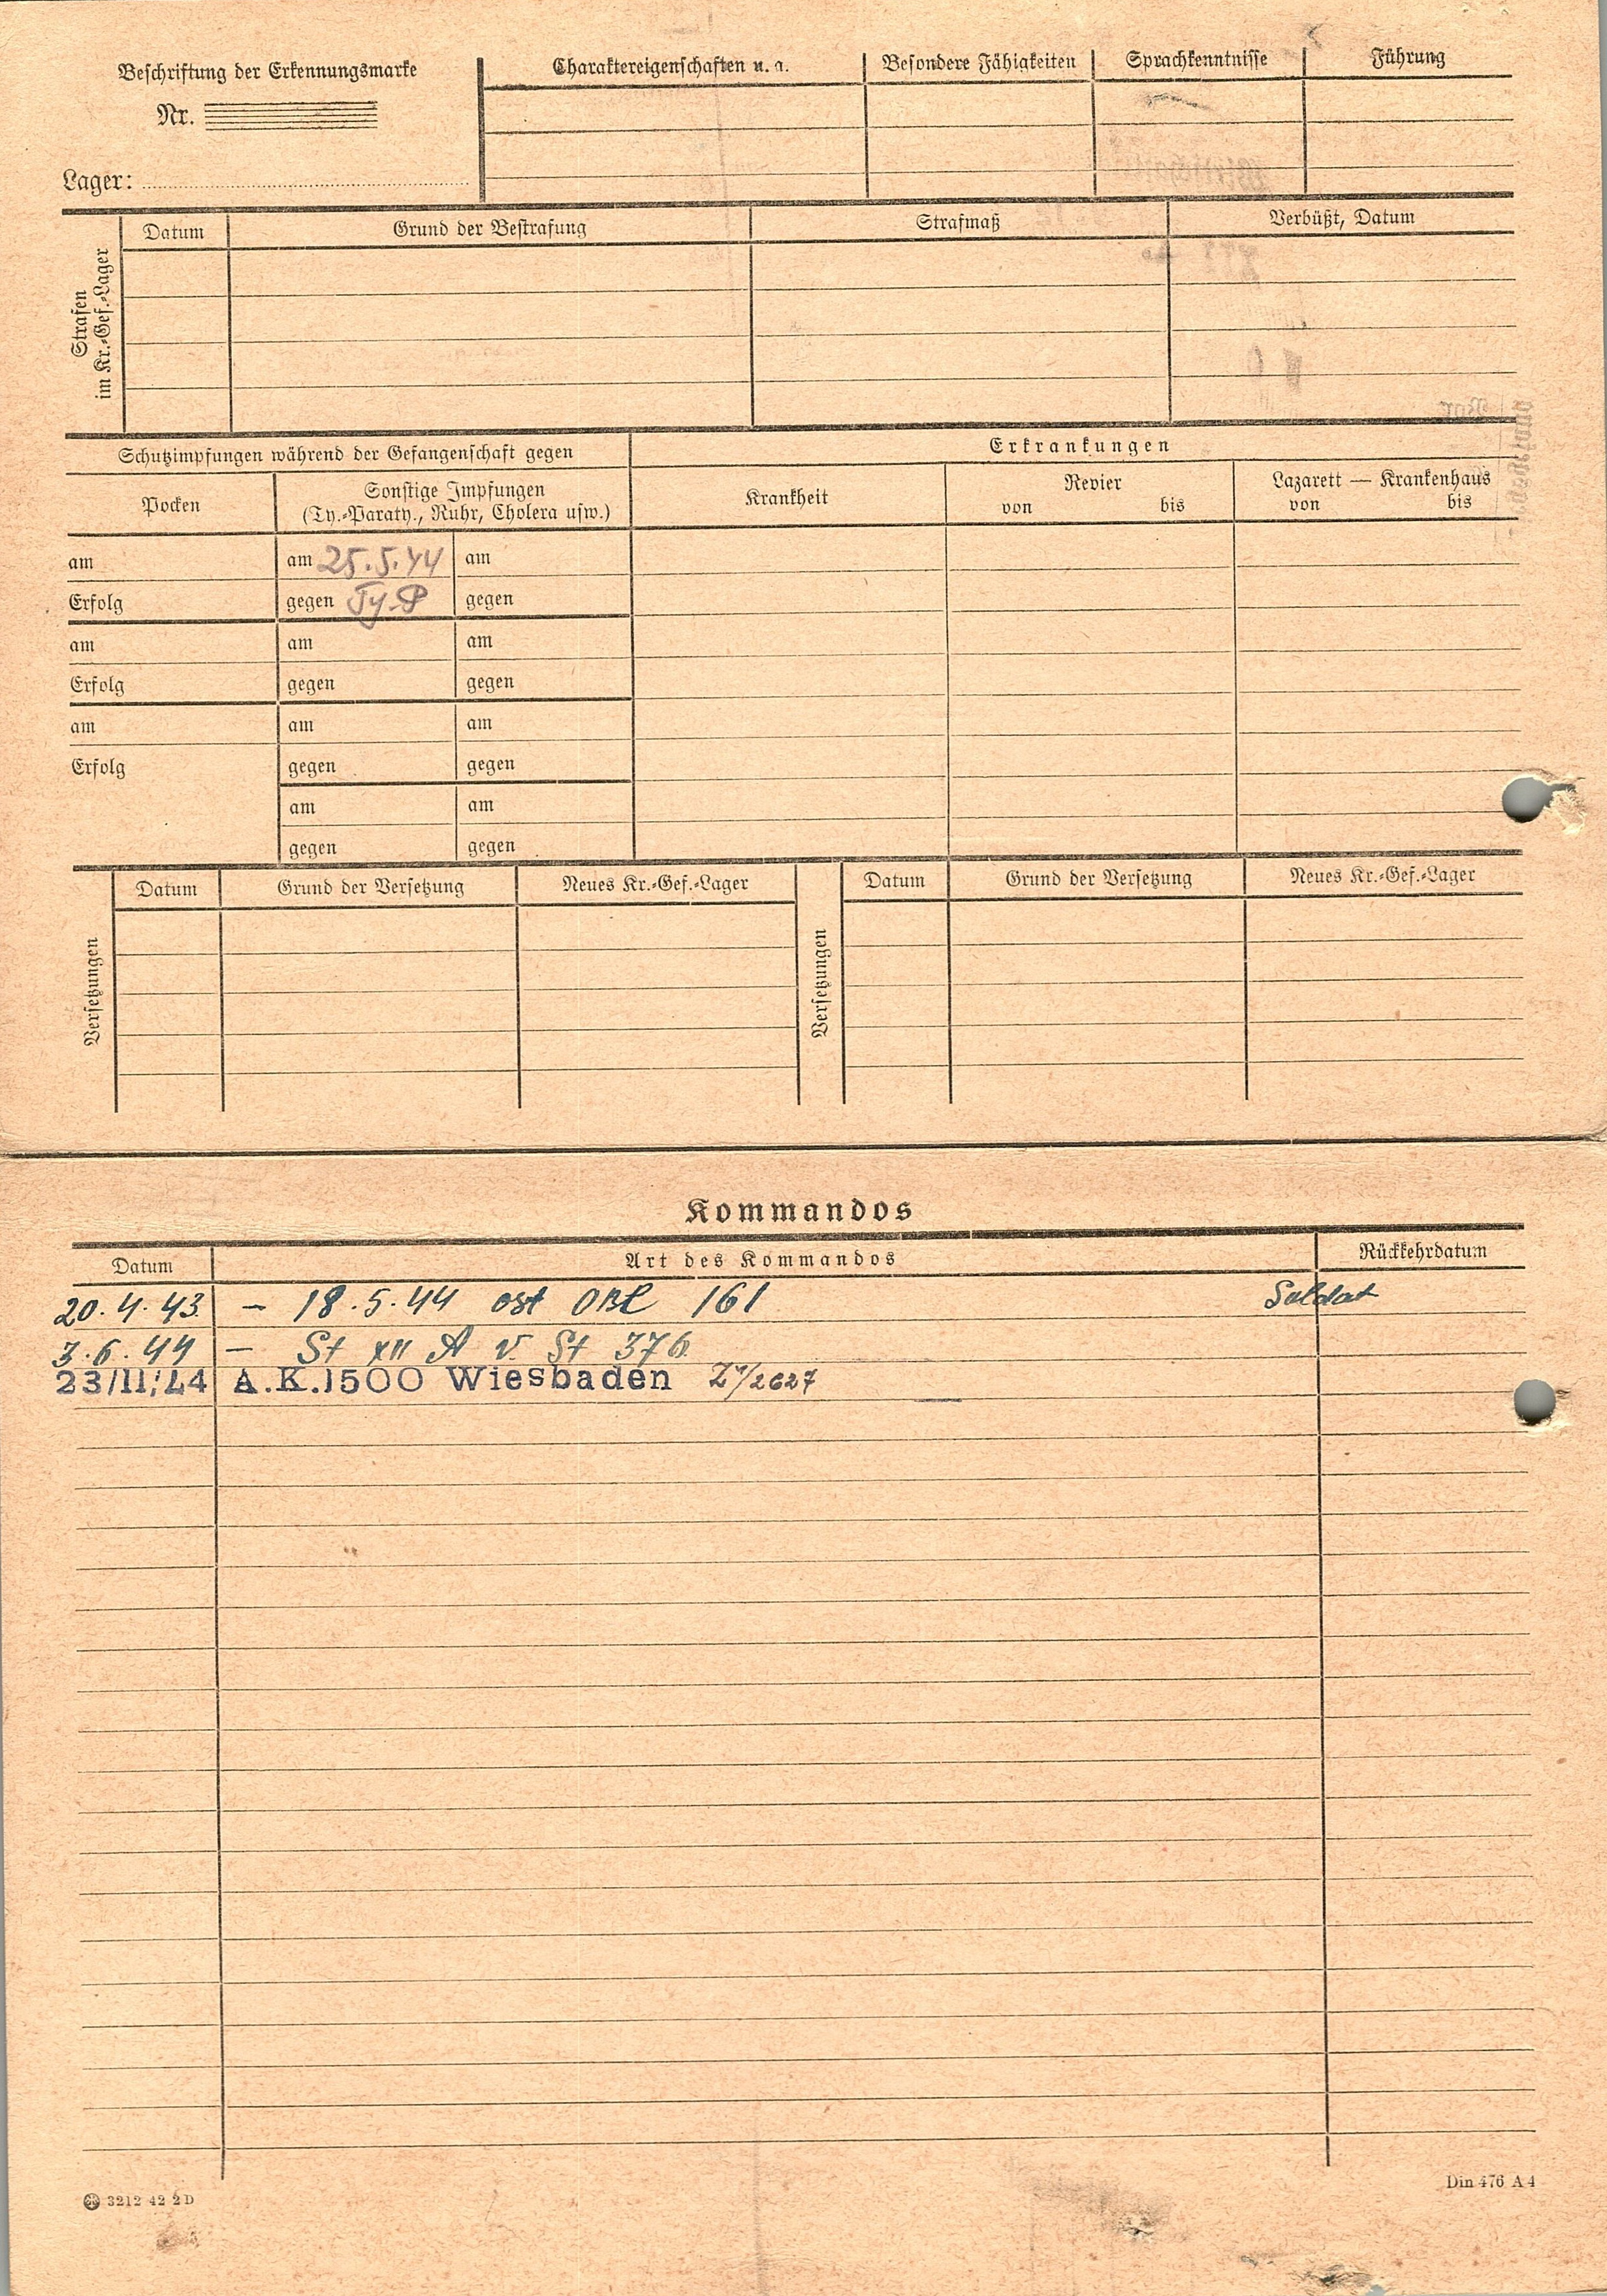 Beschriftung der Erkennungsmarke
Nr.
Lager:
Charaktereigenschaften u. a.
Besondere Fähigkeiten
Sprachkenntnisse
Führung
Strafen
im Kr.-Gef.-Lager
Datum
Grund der Bestrafung
Strafmaß
Verbüßt, Datum
Schutzimpfungen während der Gefangenschaft gegen
Erkrankungen
Pocken
Sonstige Impfungen
(Ty.-Paraty., Ruhr, Cholera usw.)
Krankheit
Revier
von bis
Lazarett — Krankenhaus
von bis
am am 25.5.44 am
Erfolg gegen Ty-P gegen
am am am
Erfolg gegen gegen
am am am
Erfolg gegen gegen
am am
gegen gegen
Versetzungen
Datum Grund der Versetzung Neues Kr.-Gef.-Lager
Versetzungen
Datum Grund der Versetzung Neues Kr.-Gef.-Lager
Kommandos
Datum Art des Kommandos Rückkehrdatum
20.4.43 – 18.5.44 ost 161 Soldat
3.6.44 – St XII A v. St 376
23/11/44 A.K.1500 Wiesbaden /2627
3212 42 2D
Din 476 A 4